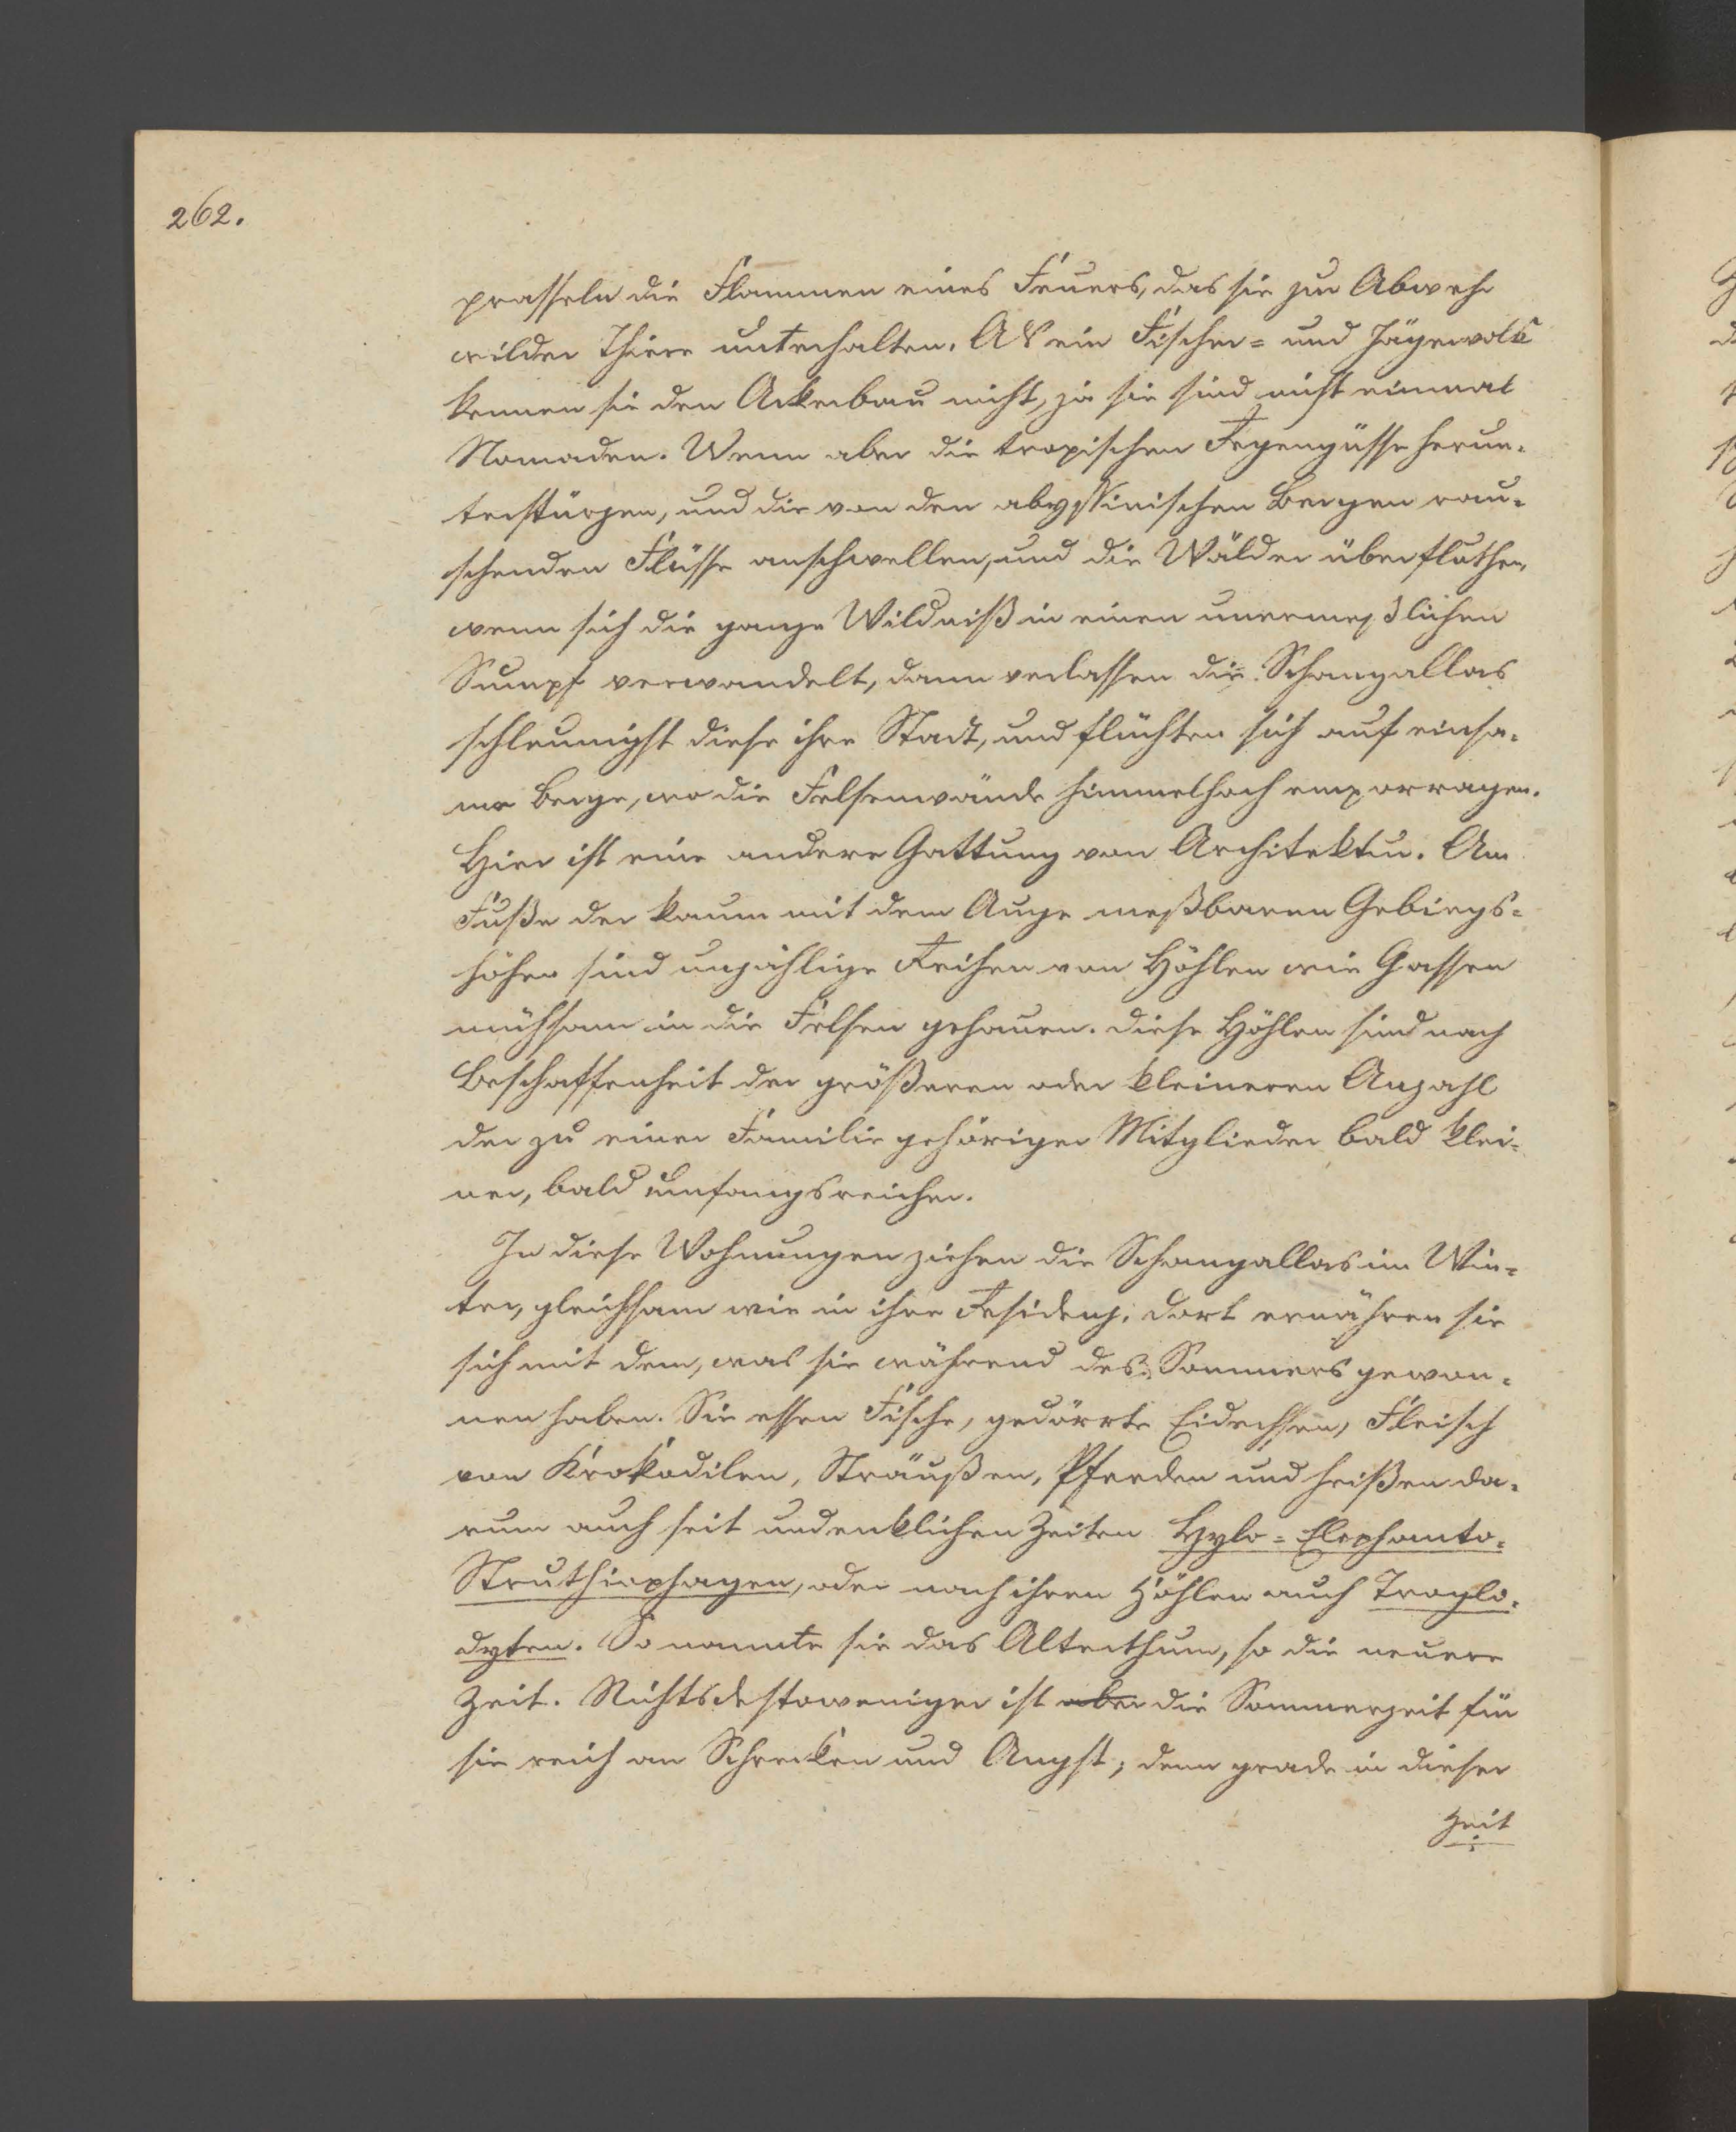 262.
prasseln die Flammen eines Feuers, das sie zur Abwehr
wilder Thiere unterhalten. Als ein Fischer= und Jägervolk
kennen sie den Ackerbau nicht, ja sie sind nicht einmal
Nomaden. Wenn aber die tropischen Regengüsse herun=
terstürzen, und die von den abyssinischen Bergen rau=
schenden Flüsse anschwellen, und die Wälder überfluthen,
wenn sich die ganze Wildniß in einen unermeßlichen
Sumpf verwandelt, dann verlassen die Schangallas
schleunigst diese ihre Stadt, und flüchten sich auf einsa=
me Berge, wo die Felsenwände himmelhoch emporragen.
Hier ist eine andere Gattung von Architektur. Am
Fuße der kaum mit dem Auge meßbaren Gebirgs=
höhen sind unzählige Reihen von Höhlen wie Gassen
mühsam in die Felsen gehauen. Diese Höhlen sind nach
Beschaffenheit der größeren oder kleineren Anzahl
der zu einer Familie gehörigen Mitglieder bald klei=
ner, bald umfangsreicher.
In diese Wohnungen ziehen die Schangallas im Win=
ter, gleichsam wie in ihre Residenz; dort ernähren sie
sich mit dem, was sie während des Sommers gewon=
nen haben. Sie essen Fische, gedörrte Eidechsen, Fleisch
von Krokodilen, Sträußen, Pferden und heißen da=
rum auch seit undenklichen Zeiten Hylo=Elephanto=
Struthiophagen, oder nach ihren Höhlen auch Troglo=
dyten. So nannte sie das Alterthum, so die neuere
Zeit. Nichtsdestoweniger ist aber die Sommerzeit für
sie reich an Schrecken und Angst; denn grade in dieser
Zeit